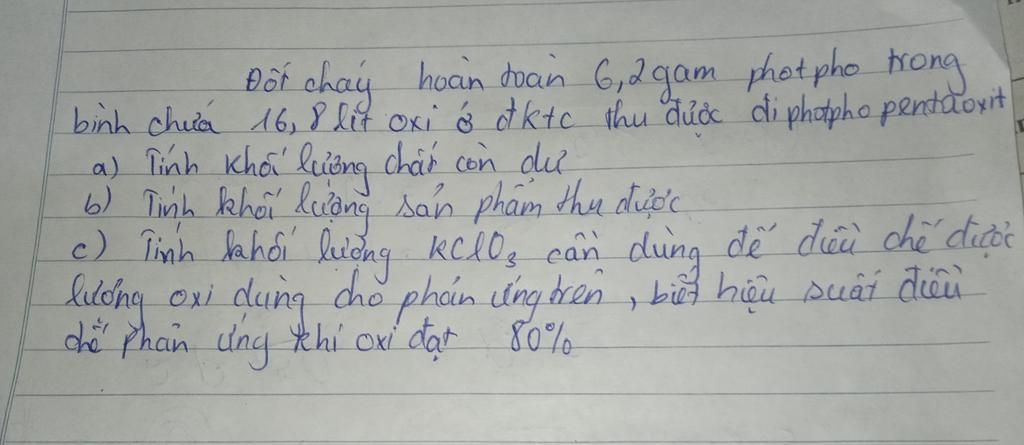 Đốt cháy hoàn toàn 6,2gam photpho trong
bình chứa 16,8 lít oxi ở đktc thu được điphotpho pentaoxit
a) Tính khối lượng chất còn dư
b) Tính khối lượng sản phẩm thu được
c) Tính khối lượng KClO₃ cần dùng để điều chế được
lượng oxi dùng cho phản ứng trên, biết hiệu suất điều
chế phản ứng khí oxi đạt 80%